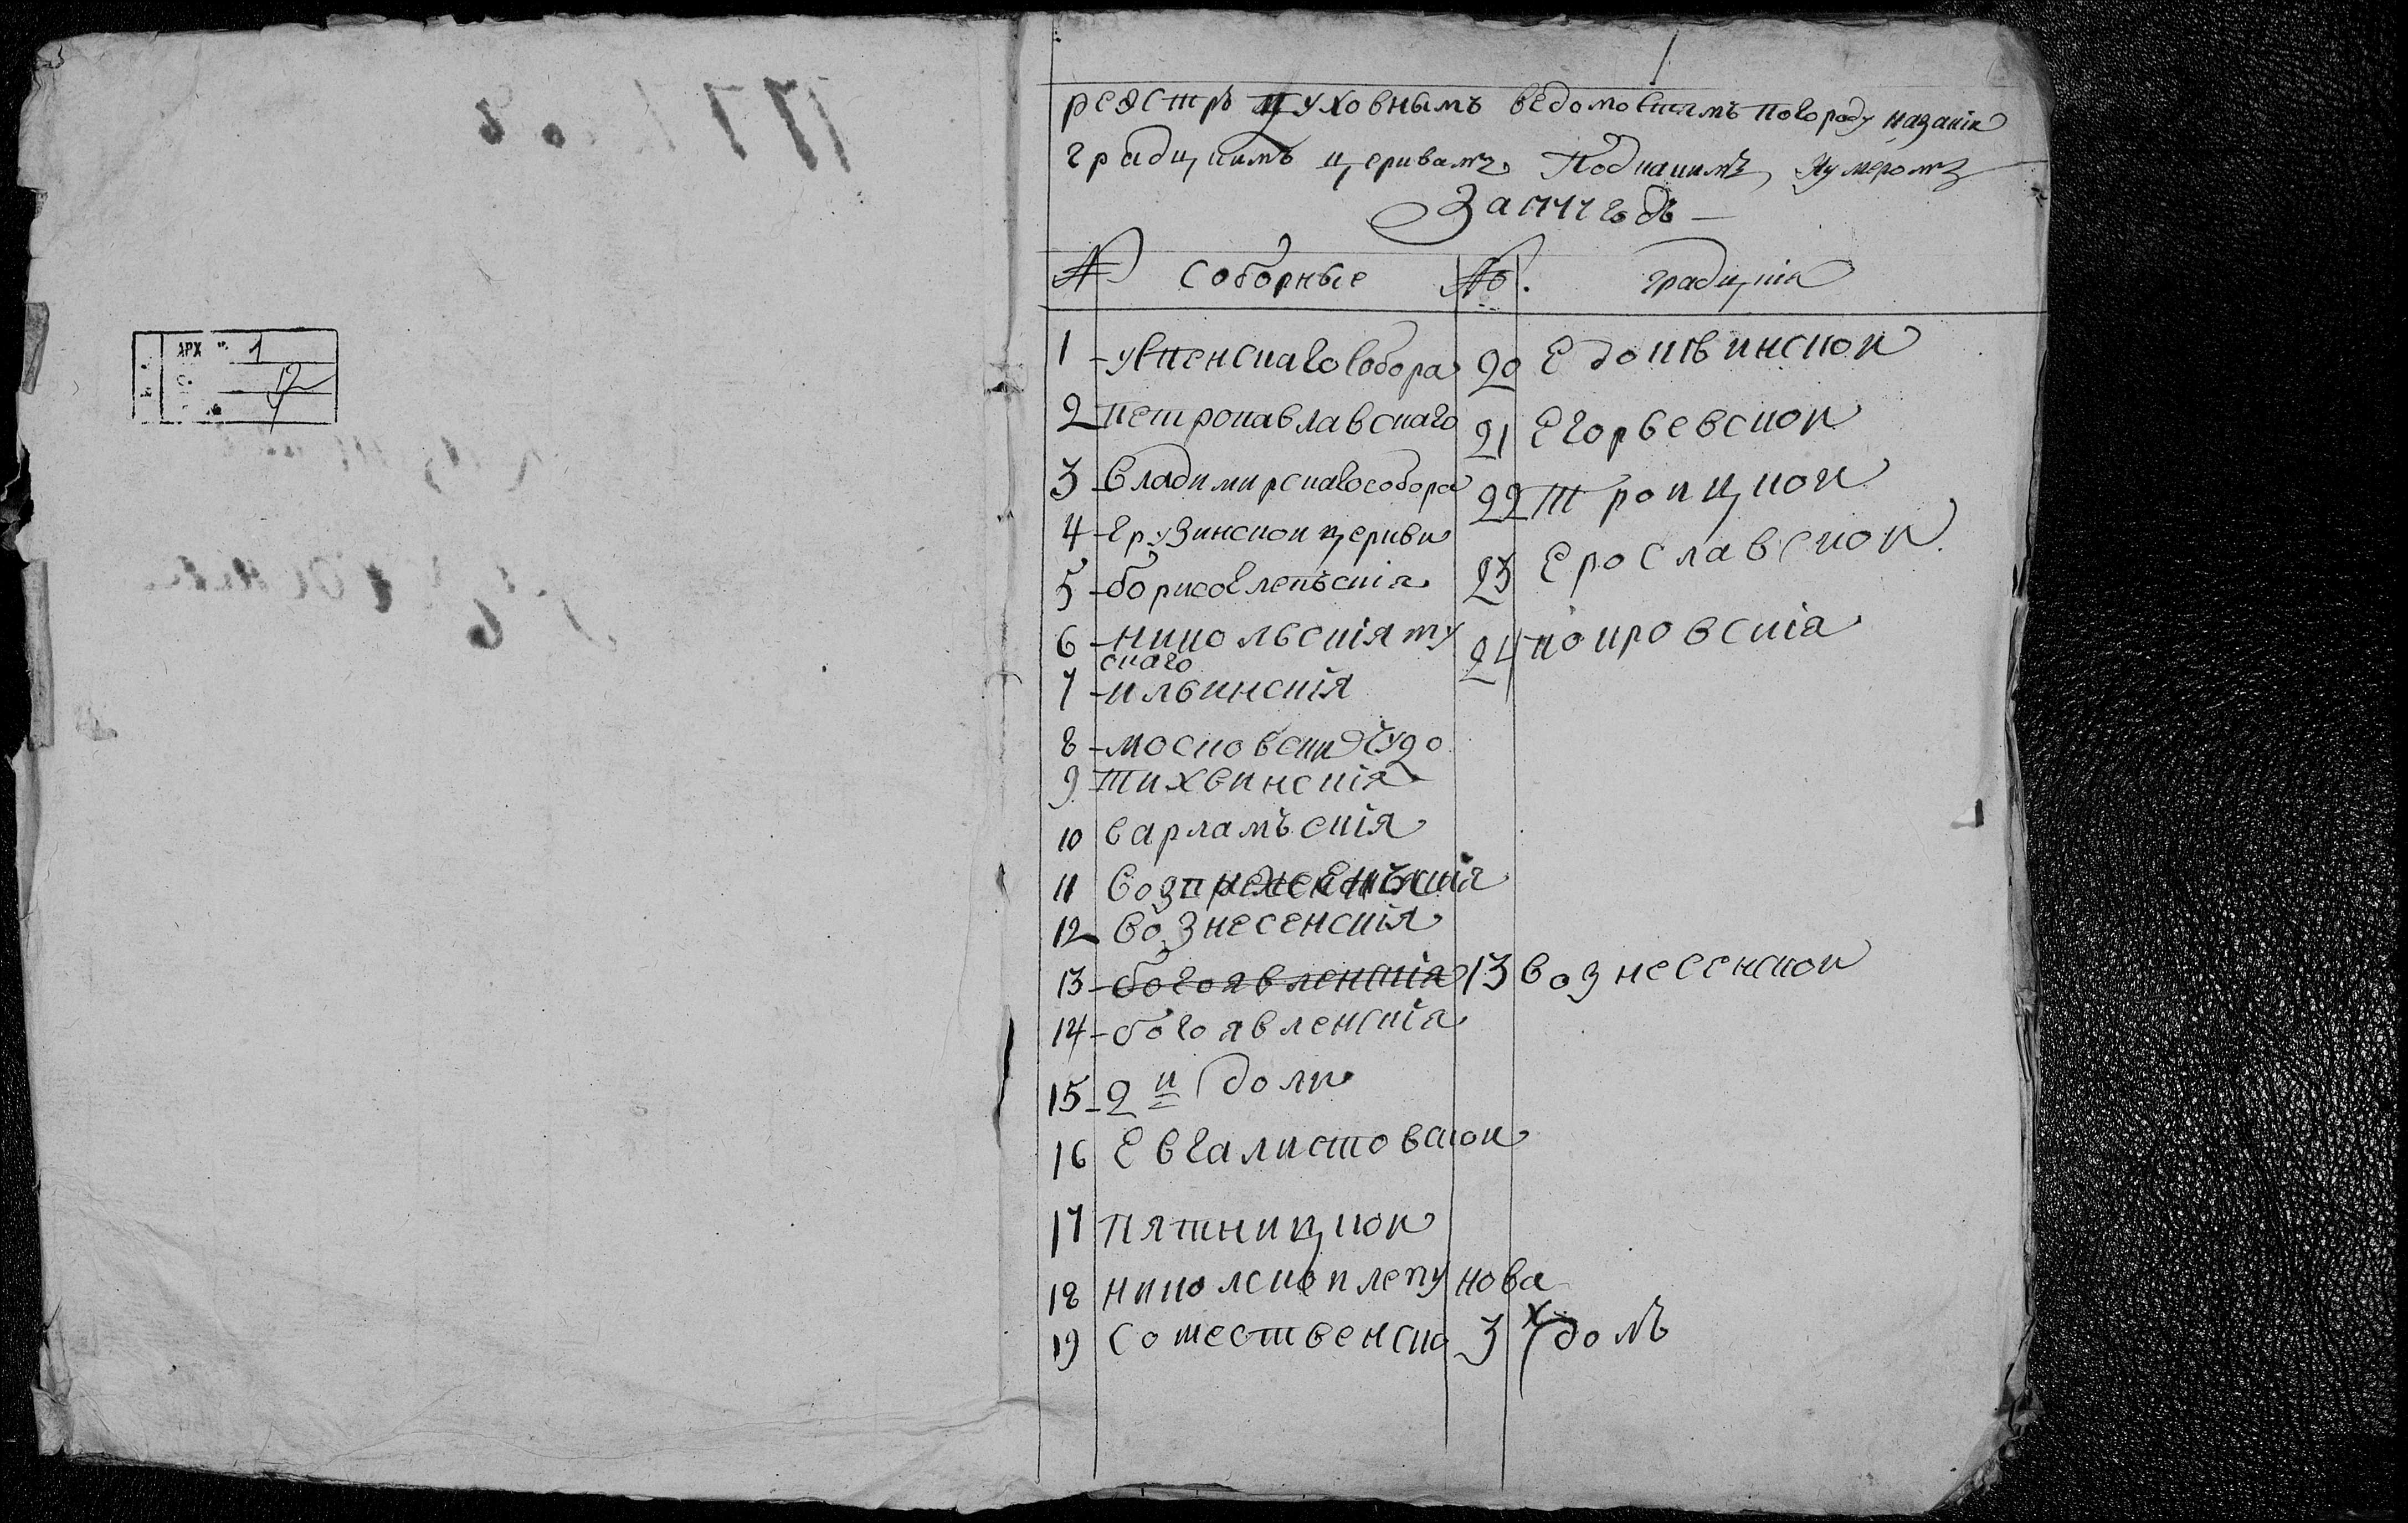 1
реэстръ духовнымъ ведомостямъ погороду Казани
градцкимъ церквамъ Подкакимъ Нумеромъ
За 1771 годъ
№ Соборные № градцкія
1 успенскаго собора 20 Едокѣинской
2 петропавлавскаго 21 Егорьевской
3 Владимирскаго собора 22 троицкой
4 Грузинской церкви 23 Ерославской
5 борисоглепъския 24 покровския
6 никольския ту
скаго
7 ильинския
8 московски чудо
9 тихвинския
10 варламъския
11
12 вознесенския
13 богоявленския 13 вознесенской
14 богоявленския
15 2й доли
16 Евгалистовской
17 пятницкой
18 николско
19 Сошественско 3х долъ
АРХ
1